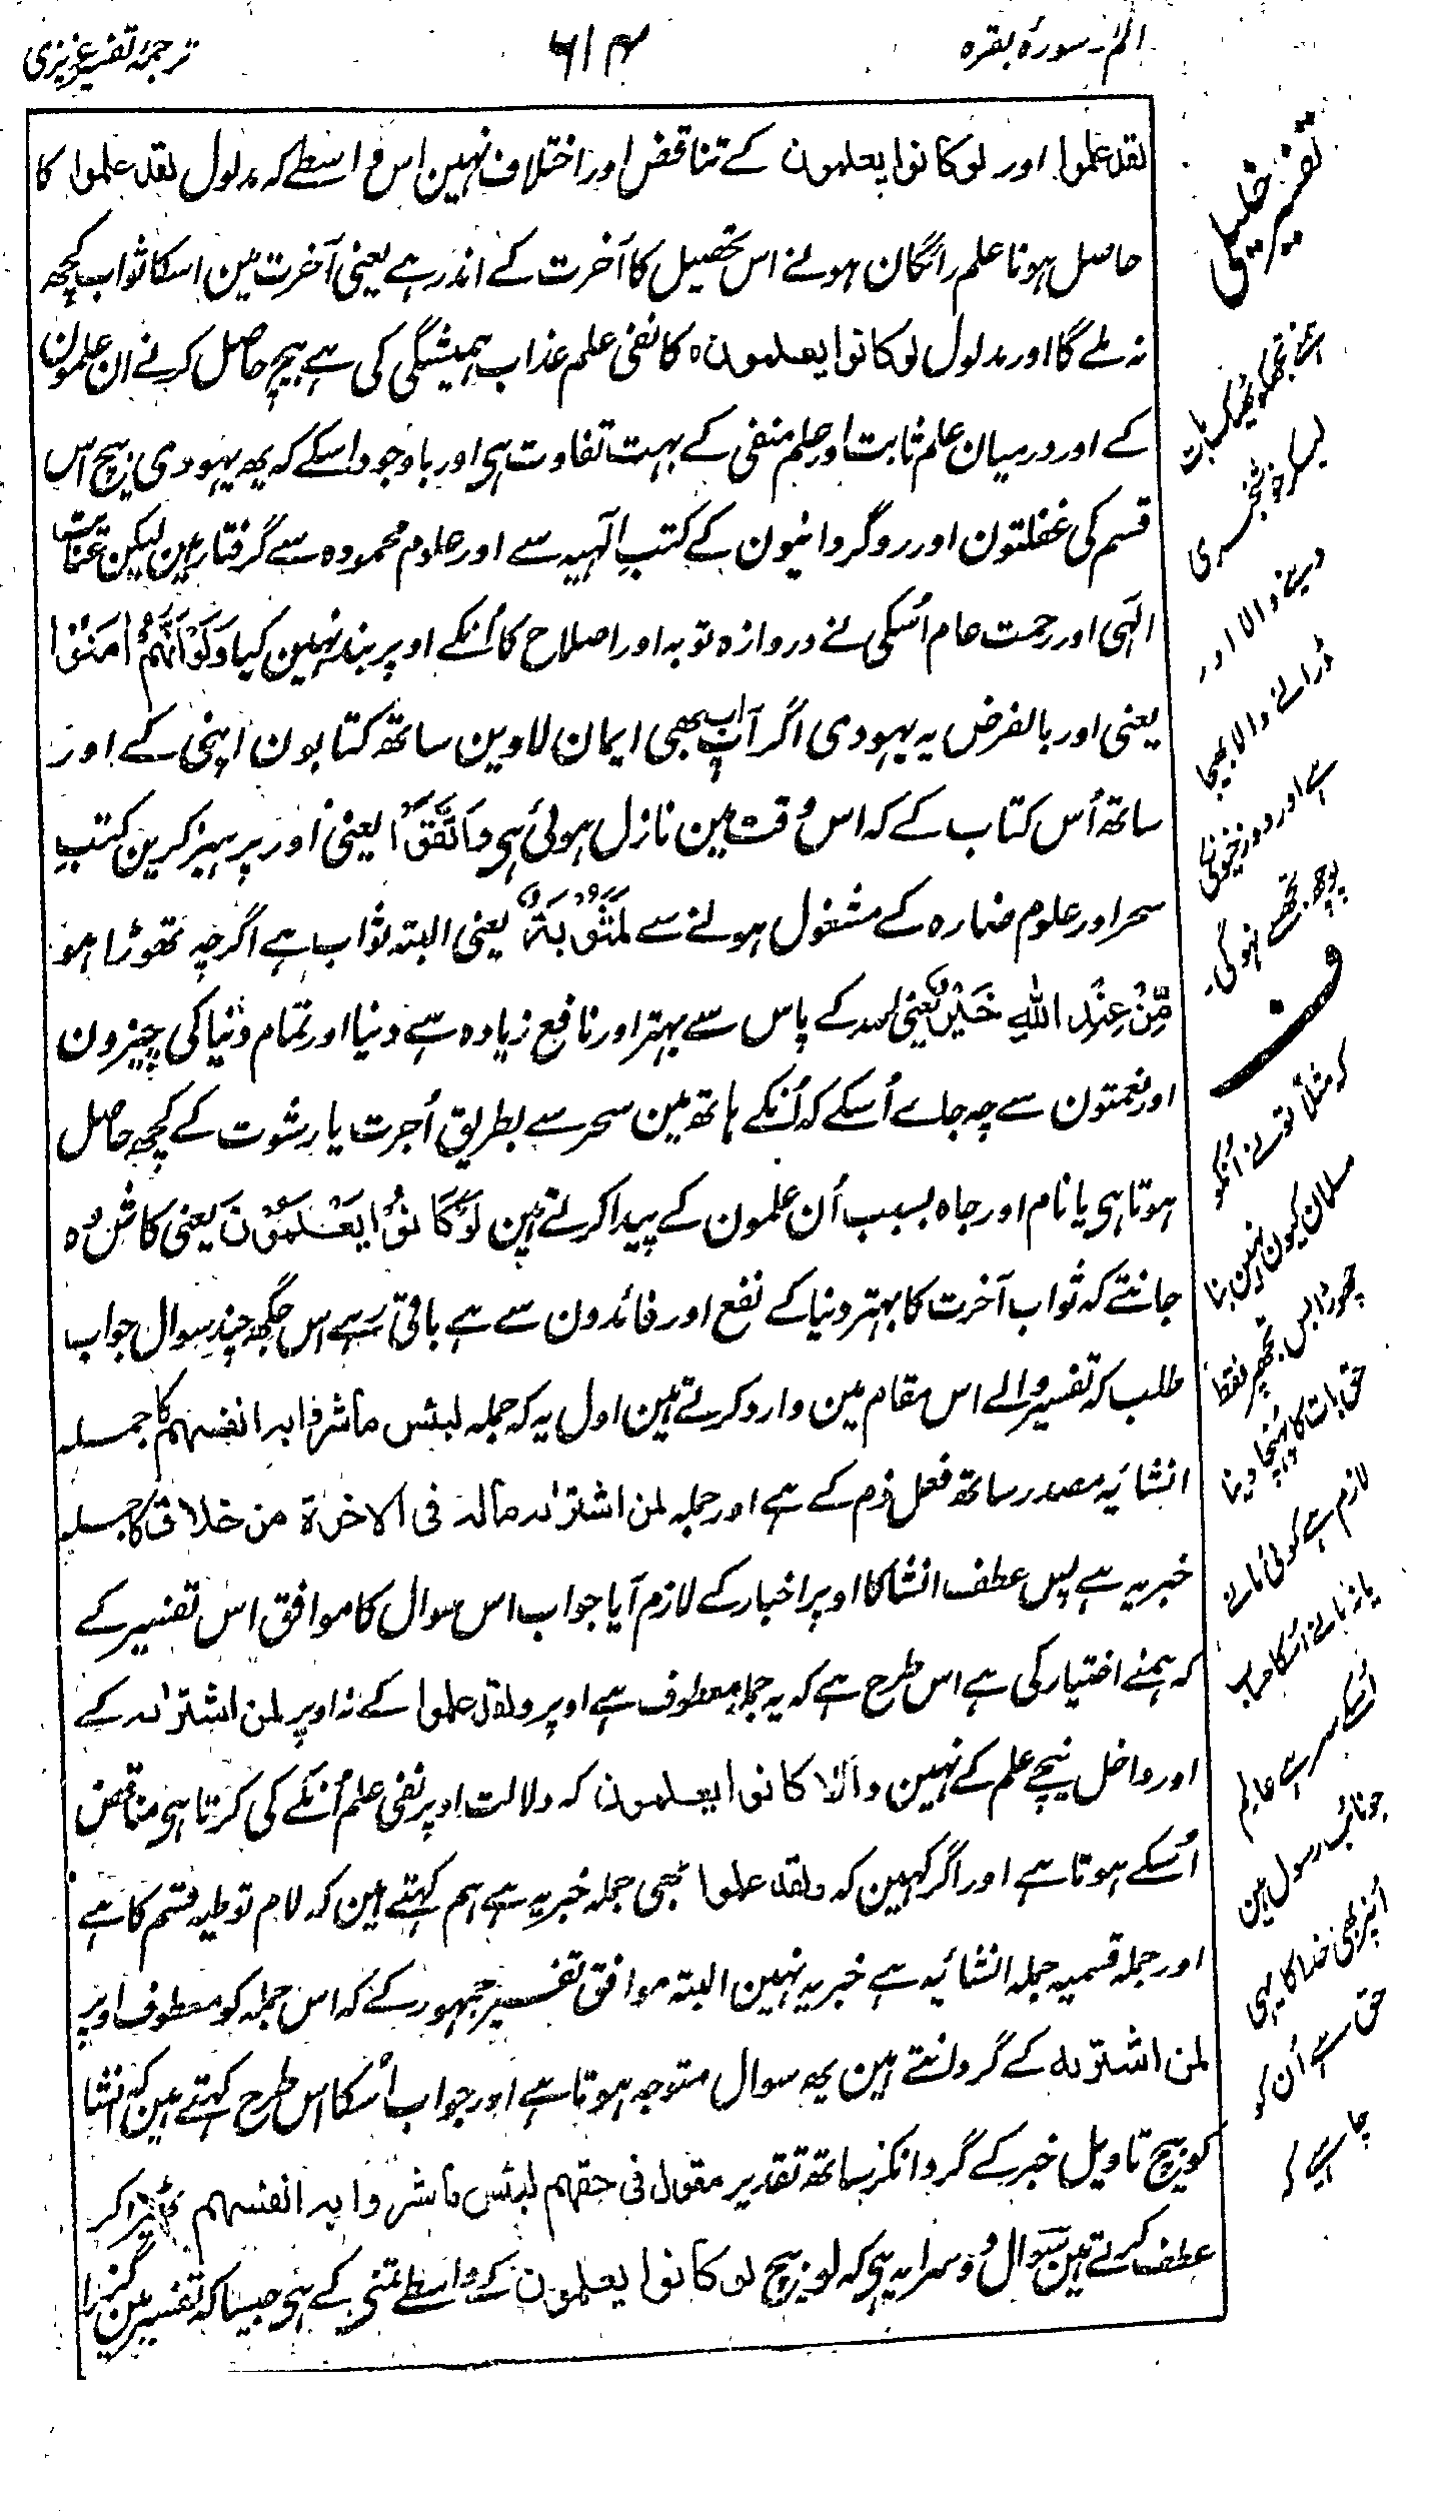 الم۔ سورۂ بقرہ
۶۱۴
ترجمۂ تفسیر عزیزی
لقد علموا اور لو کانوا یعلمون کے تناقض اور اختلاف نہین اس واسطے کہ مدلول لقد علموا کا
حاصل ہونا علم رائگان ہونے اس تحصیل کا آخرت کے اندر ہے یعنی آخرت مین اسکا ثواب کچھ
نہ ملے گا اور مدلول لو کانوا یعلمون ہ کا نفی علم عذاب ہمیشگی کی ہے بیچ حاصل کرنے ان علمون
کے اور درمیان علم ثابت اور علم منفی کے بہت تفاوت ہی اور باوجود اسکے کہ یہ یہودی بیچ اس
قسم کی غفلتون اور روگردانیون کے کتب الٓہیہ سے اور علوم محمودہ سے گرفتار ہین لیکن عنایت
الٓہی اور رحمت عام اُسکی نے دروازہ توبہ اور اصلاح کا اُنکے اوپر بند نہین کیا وَلَوْ اَنَّهُمْ اٰمَنُوْا
یعنی اور بالفرض یہ یہودی اگر اب بھی ایمان لاوین ساتھ کتابون اپنی کے اور
ساتھ اُس کتاب کے کہ اس وقت مین نازل ہوئی ہی وَاتَّقَوْا یعنی اور پرہیز کرین کتبِ
سحر اور علوم ضارہ کے مشغول ہونے سے لَمَثُوْبَةٌ یعنی البتہ ثواب ہے اگرچہ تھوڑا ہو
مِّنْ عِنْدِ اللّٰهِ خَیْرٌ یعنی اللہ کے پاس سے بہتر اور نافع زیادہ سے دنیا اور تمام دنیا کی چیزون
اور نعمتون سے چہ جاے اُسکے کہ اُنکے ہاتھ مین سحر سے بطریق اُجرت یا رشوت کے کچھ حاصل
ہوتا ہی یا نام اور جاہ بسبب اُن علمون کے پیدا کرتے ہین لَوْ کَانُوْا یَعْلَمُوْنَ یعنی کاش وہ
جانتے کہ ثواب آخرت کا بہتر دنیا کے نفع اور فائدون سے ہے باقی رہے اس جگہ چند سوال جواب
طلب کہ تفسیر والے اس مقام مین وارد کرتے ہین اول یہ کہ جملہ لبئس ما شروا بہ انفسہم کا جملہ
انشائیہ مصدر ساتھ فعل ذم کے ہے اور جملہ لمن اشترٰىہ مالہ فی الاخرة من خلاق کا جملہ
خبریہ ہے پس عطف انشا کا اوپر اخبار کے لازم آیا جواب اس سوال کا موافق اس تفسیر کے
کہ ہمنے اختیار کی ہے اس طرح ہے کہ یہ جملہ معطوف ہے اوپر ولقد علموا کے نہ اوپر لمن اشترٰىہ کے
اور داخل نیچے علم کے نہین والّا لا کانوا یعلمون کہ دلالت اوپر نفی علم اُنکے کی کرتا ہی مناقض
اُسکے ہوتا ہے اور اگر کہین کہ ولقد علموا بھی جملہ خبریہ ہے ہم کہتے ہین کہ لام توطیہ قسم کا ہے
اور جملہ قسمیہ جملہ انشائیہ ہے خبریہ نہین البتہ موافق تفسیر جمہور کے کہ اس جملہ کو معطوف اوپر
لمن اشترىہ کے گردانتے ہین یہ سوال متوجہ ہوتا ہے اور جواب اُسکا اس طرح کہتے ہین کہ انشا
کو بیچ تاویل خبر کے گردانکر ساتھ تقدیر مقول فی حقہم لبئس ما شروا بہ انفسہم ٹھیرا کر
عطف کرتے ہین سوال دوسرا یہ ہی کہ لو بیچ لو کانوا یعلمون کے واسطے تمنی کے ہی جیسا کہ تفسیر مین گذرا
تفسیر خلیلی
ہمنے تجھکو ٹھیک بات
لیکر خوشخبری
دینے والا اور
ڈرانے والا بھیجا
ہے اور دوزخیون کی
پوچھ تجھسے نہوگی۔
ف
کہ مثلاً تونے اُنکو
مسلمان کیون نہین بنا
چھوڑا بس تجھپر فقط
حق بات کا پہنچا دینا
لازم ہے کوئی مانے
یا نہ مانے اسکا وبال
اُسکے سر ہے عالم
جو نائب رسول ہین
اُنپر بھی خدا کا یہی
حق ہے اُن کو
چاہیے کہ